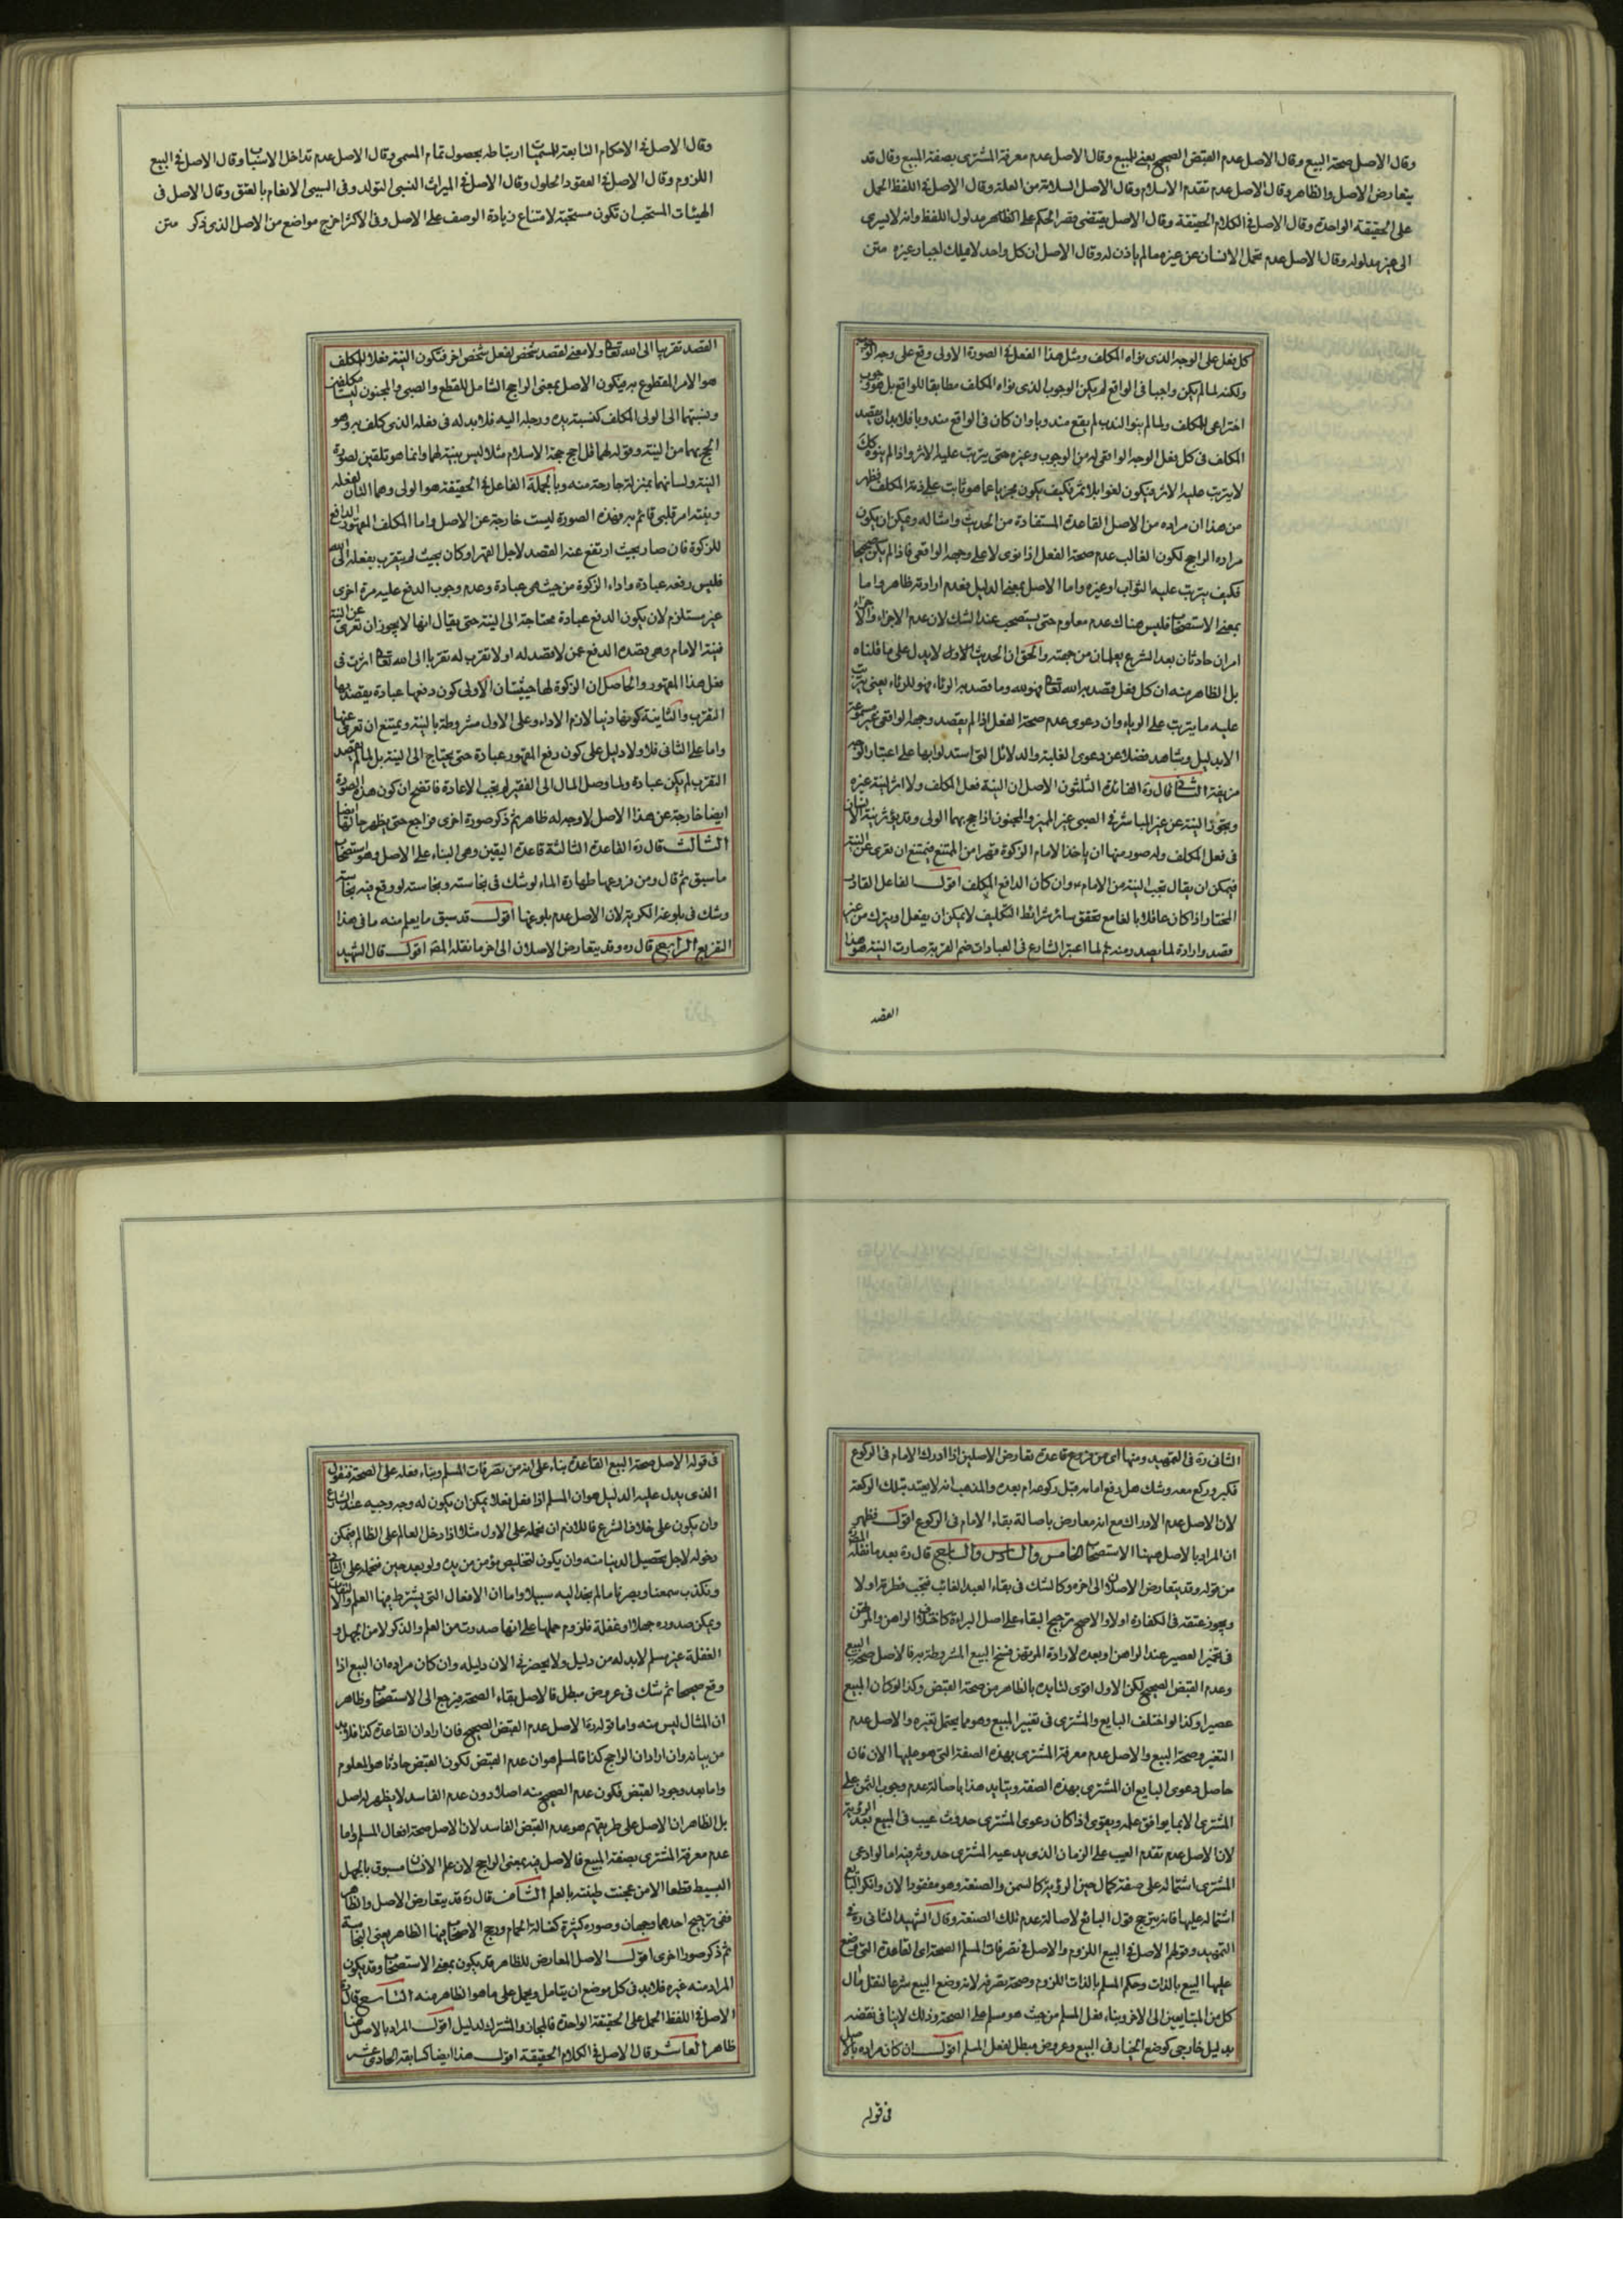 وقال الاصل صحة البيع وقال الاصل عدم القبض الصحيح يعنى للمبيع وقال الاصل عدم معرفة المشترى بصفة المبيع وقال قد
يتعارض الاصل والظاهر وقال الاصل عدم تقدم الاسلام وقال الاصل السلامة من العلة وقال الاصل فى اللفظ الحمل
على الحقيقة الواحدة وقال الاصل فى الكلام الحقيقة وقال الاصل يقتضى قصر الحكم على الظاهر مدلول اللفظ وانه لا يسرى
الى غير مدلوله وقال الاصل عدم تحمل الانسان عن غيره ما لم ياذن له وقال الاصل ان كل واحد لا يملك اجبار غيره متن
كل فعل على الوجه الذى نواه المكلف ومثل هذا الفعل فى الصورة الاولى وقع على وجه الوجوب
ولكنه لما لم يكن واجبا فى الواقع لم يكن الوجوب الذى نواه المكلف مطابقا للواقع بل هو وجوب
اختراعى للمكلف ولما لم ينو الندب لم يقع مندوبا وان كان فى الواقع مندوبا فلابد ان يقصد
المكلف فى كل فعل الوجه الواقعى له من الوجوب وغيره حتى يترتب عليه الاثر واذا لم ينو كك
لا يترتب عليه الاثر فيكون لغوا بلا ثمر فكيف يكون مجزيا عما هو ثابت على ذمة المكلف فظهر
من هذا ان مراده من الاصل القاعدة المستفادة من الحديث وامثاله ويمكن ان يكون
مراده الراجح لكون الغالب عدم صحة الفعل اذا نوى لا على وجهه الواقعى فاذا لم يكن صحيحا
فكيف يترتب عليه الثواب او غيره واما الاصل بمعنى الدليل فعدم ارادته ظاهر واما
بمعنى الاستصحاب فليس هناك عدم معلوم حتى يستصحب عند الشك لان عدم الاجزاء والاجزاء
امران حادثان بعد الشرع يعلمان من جهته والحق ان الحديث الاول لا يدل على ما قلناه
بل الظاهر منه ان كل فعل قصد به الله تعالى فهو لله وما قصد به الرئاء فهو للرئاء يعنى يترتب
عليه ما يترتب على الرياء وان دعوى عدم صحة الفعل اذا لم يقصد وجهه الواقعى غير مسموعة
الا بدليل وشاهد فضلا عن دعوى الغلبة والدلائل التى استدلوا بها على اعتبار الوجه
مزيفة الثانى قال ره الفائدة الثلثون الاصل ان النية فعل المكلف ولا اثر لنية غيره
وتجوز النية عن غير المباشر فى الصبى غير المميز والمجنون اذا حج بهما الولى وقد يؤثر نية الانسان
فى فعل المكلف وله صور منها ان ياخذ الامام الزكوة قهرا من الممتنع فيمتنع ان تعرى عن النية
فيمكن ان يقال تجب النية من الامام وان كان الدافع المكلف اقول الفاعل القادر
المختار اذا كان عاقلا بالغا مع تحقق سائر شرائط التكليف لا يمكن ان يفعل او يترك من غير
قصد وارادة لما يصدر منه ثم لما اعتبر الشارع فى العبادات ضم القربة صارت النية هو هذا
القصد
وقال الاصل فى الاحكام التابعة للمسميات ارتباطه بحصول تمام المسمى وقال الاصل عدم تداخل الاسباب وقال الاصل فى البيع
اللزوم وقال الاصل فى العقود الحلول وقال الاصل فى الميراث النسبى التولد وفى السببى الانعام بالعتق وقال الاصل فى
الهيئات المستحبة ان تكون مستحبة لامتناع زيادة الوصف على الاصل وفى الاكثر اخرج مواضع من الاصل الذى ذكر متن
القصد تقربا الى الله تعالى ولا معنى لقصد شخص لفعل شخص اخر فتكون النية فعلا للمكلف
هو الامر المقطوع به فيكون الاصل بمعنى الراجح الشامل للقطع والصبى والمجنون ليسا مكلفين
ونسبتهما الى الولى المكلف كنسبة يده ورجله اليه فلابد له فى فعله الذى كلف به وهو
الحج بهما من النية وقوله لهما قل احج حجة الاسلام مثلا ليس بنية لهما وانما هو تلقين لصورة
النية ولسانهما بمنزلة جارحة منه وبالجملة الفاعل فى الحقيقة هو الولى وهما التان لفعله
ونيته امر قلبى قائم به فهذه الصورة ليست خارجة عن الاصل واما المكلف المقهور الدافع
للزكوة فان صار بحيث ارتفع عنه القصد لاجل القهر او كان بحيث لم يتقرب بفعله الى الله
فليس دفعه عبادة واداء الزكوة من حيث هى عبادة وعدم وجوب الدفع عليه مرة اخرى
غير مستلزم لان يكون الدفع عبادة محتاجة الى النية حتى يقال انها لا يجوز ان تعرى عن النية
فنية الامام وهى قصده الدفع عمن لا قصد له او لا تقرب له تقربا الى الله تعالى اثرت فى
فعل هذا المقهور والحاصل ان الزكوة لها حيثيتان الاولى كون دفعها عبادة يقصد بها
التقرب والثانية كونها دنيا لازم الاداء وعلى الاول مشروطة بالنية ويمتنع ان تعرى عنها
واما على الثانى فلا ولا دليل على كون دفع المقهور عبادة حتى يحتاج الى النية بل لما لم يقصد
التقرب لم يكن عبادة ولما وصل المال الى الفقير لم يجب الاعادة فاتضح ان كون هذه الصورة
ايضا خارجة عن هذا الاصل لا وجه له ظاهر ثم ذكر صورة اخرى فراجع حتى يظهر حالها ايضا
الثالث قال ره القاعدة الثالثة قاعدة اليقين وهى البناء على الاصل وهو استصحاب
ما سبق ثم قال ومن فروعها طهارة الماء لو شك فى نجاسته ونجاسته لو وقع فيه نجاسة
وشك فى بلوغه الكرية لان الاصل عدم بلوغها اقول قد سبق ما يعلم منه ما فى هذا
التفريع الرابع قال ره وقد يتعارض الاصلان الى اخر ما نقله المصـ اقول قال الشهيد
الثانى ره فى التمهيد ومنها اى من فروع قاعدة تعارض الاصلين اذا ادرك الامام فى الركوع
فكبر وركع معه وشك هل رفع امامه قبل ركوعه ام بعده والمذهب انه لا يعتد بتلك الركعة
لان الاصل عدم الادراك مع انه معارض باصالة بقاء الامام فى الركوع اقول فظهر
ان المراد بالاصل ههنا الاستصحاب الخامس والسادس والسابع قال ره بعد ما نقله المصـ
من قوله وقد يتعارض الاصلان الى اخره وكالشك فى بقاء العبد الغائب فتجب فطرته اولا
ويجوز عتقه فى الكفارة اولا والاصح ترجيح البقاء على اصل البراءة كاختلاف الراهن والمرتهن
فى تخمر العصير عند الراهن او بعده لارادة المرتهن فسخ البيع المشروطة به فالاصل صحة البيع
وعدم القبض الصحيح لكن الاول اقوى لتايده بالظاهر من صحة القبض وكذا لو كان المبيع
عصيرا وكذا لو اختلف البايع والمشترى فى تغيير المبيع وهو مما يحتمل تغيره والاصل عدم
التغير وصحة البيع والاصل عدم معرفة المشترى بهذه الصفة التى هو عليها الان فان
حاصل دعوى البايع ان المشترى بهذه الصفة ويتايد هذا باصالة عدم وجوب الثمن على
المشترى الا بما يوافق علمه ويقوى اذا كان دعوى المشترى حدوث عيب فى المبيع بعد الرؤية
لان الاصل عدم تقدم العيب على الزمان الذى يدعيه المشترى حدوثه فيه اما لو ادعى
المشترى اشتماله على صفة كمال حين الرؤية كالسمن والصنعة وهو مفقود الان وانكر البايع
اشتماله عليها فانه يترجح قول البائع لاصالة عدم تلك الصنعة وقال الشهيد الثانى ره فى
التمهيد وقولهم الاصل فى البيع اللزوم والاصل فى تصرفات المسلم الصحة اى القاعدة التى وضع
عليها البيع بالذات وحكم المسلم بالذات اللزوم وصحة تصرفه لانه وضع البيع شرعا لنقل مال
كل من المتبايعين الى الاخر وبناء فعل المسلم من حيث هو مسلم على الصحة وذلك لا ينافى نقضه
بدليل خارجى كوضع الخيار فى البيع وعروض مبطل لفعل المسلم اقول ان كان مراده بالاصل
فى قوله
فى قوله الاصل صحة البيع القاعدة بناء على انه من تصرفات المسلم وبناء فعله على الصحة فنقول
الذى يدل عليه الدليل هو ان المسلم اذا فعل فعلا يمكن ان يكون له وجه وجيه عند الشارع
وان يكون على خلاف الشرع فاللازم ان نحمله على الاول مثلا اذا دخل العالم على الظالم فيمكن
دخوله لاجل تحصيل الدنيا منه وان يكون لتخليص مؤمن من يده ولو بعد حين فنحمله على الثانى
ونكذب سمعنا وبصرنا ما لم نجد اليه سبيلا واما ان الافعال التى يشترط فيها العلم والالتفات
ويمكن صدوره جهلا او غفلة فلزوم حملها على انها صدرت من العلم والذكر لا من الجهل و
الغفلة غير مسلم لابد له من دليل ولا يحضرنى الان دليله وان كان مراده ان البيع اذا
وقع صحيحا ثم شك فى عروض مبطل فالاصل بقاء الصحة فيرجع الى الاستصحاب وظاهر
ان المثال ليس منه واما قوله ره الاصل عدم القبض الصحيح فان اراد ان القاعدة كذا فلابد
من بيانه وان اراد ان الراجح كذا فالمسلم هو ان عدم القبض لكون القبض حادثا هو المعلوم
واما بعد وجود القبض فكون عدم الصحيح منه اصلا دون عدم الفاسد لا يظهر له اصل
بل الظاهر ان الاصل على طريقتهم هو عدم القبض الفاسد لان الاصل صحة افعال المسلم واما
عدم معرفة المشترى بصفة المبيع فالاصل فيه بمعنى الراجح لان علم الانسان مسبوق بالجهل
البسيط قطعا الا من عجنت طينته بالعلم الثامن قال ره قد يتعارض الاصل والظاهر
ففى ترجيح احدهما وجهان وصوره كثيرة كغسالة الحمام ورجح الاصحاب فيها الظاهر يعنى النجاسة
ثم ذكر صورا اخرى اقول الاصل المعارض للظاهر قد يكون بمعنى الاستصحاب وقد يكون
المراد منه غيره فلابد فى كل موضع ان يتامل ويحمل على ما هو الظاهر منه التاسع قال ره
الاصل فى اللفظ الحمل على الحقيقة الواحدة فالمجاز والمشترك لدليل اقول المراد بالاصل هنا
ظاهر العاشر قال الاصل فى الكلام الحقيقة اقول هذا ايضا كسابقه الحادى عشر